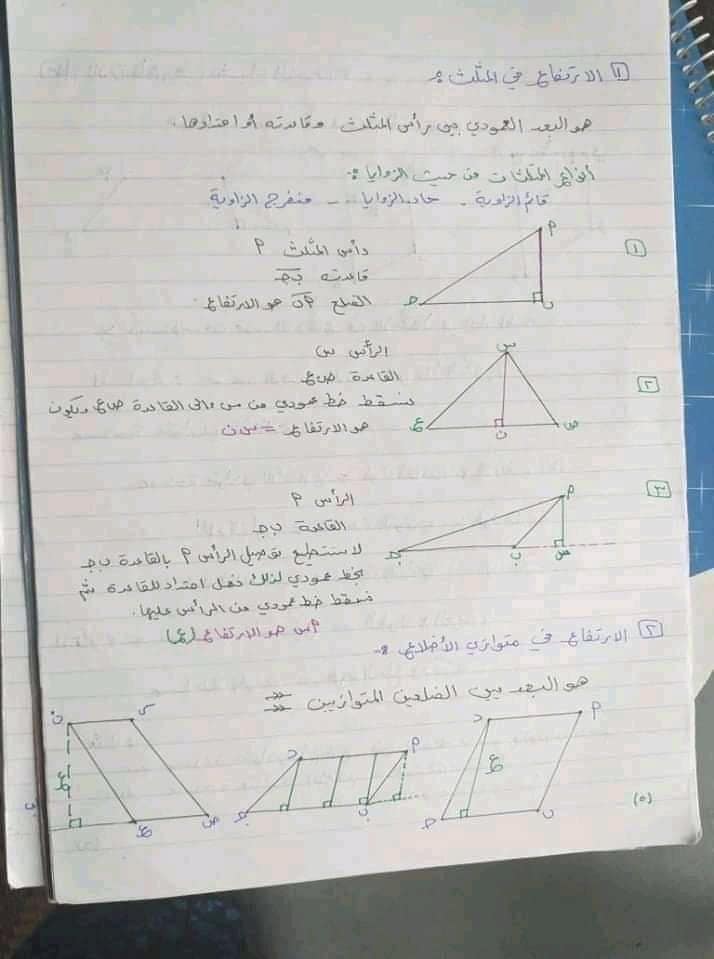 ١ الارتفاع في المثلث :
هو البعد العمودي بين رأس المثلث وقاعدته أو امتدادها.
أنواع المثلثات من حيث الزوايا :
قائم الزاوية - حاد الزوايا - منفرج الزاوية
١
رأس المثلث م
قاعدته ب جـ
الضلع م ب هو الارتفاع
م
ب
جـ
٢
الرأس س
القاعدة ص ع
نسقط خط عمودي من س إلى القاعدة ص ع ويكون
هو الارتفاع = س ن
س
ص
ن
ع
٣
الرأس م
القاعدة ب جـ
لا نستطيع توصيل الرأس م بالقاعدة ب جـ
بخط عمودي لذلك نعمل امتداد للقاعدة ثم
نسقط خط عمودي من الرأس عليها.
م س هو الارتفاع (ع)
م
س
ب
جـ
٢ الارتفاع في متوازي الأضلاع :
هو البعد بين الضلعين المتوازيين
م
د
ع
ب
جـ
م
د
ب
جـ
ن
ع
ص
ع
(٥)